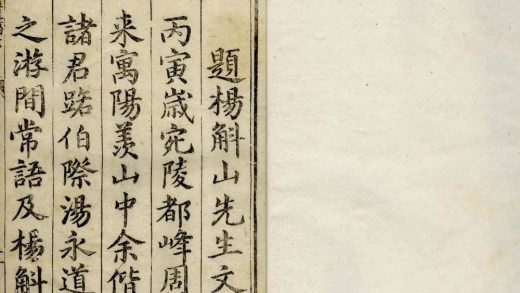 題楊斛山先生文
丙寅嵗宛陵都峰周
来寓陽羡山中余偕
諸君跲伯際湯永道
之游間常語及楊斛